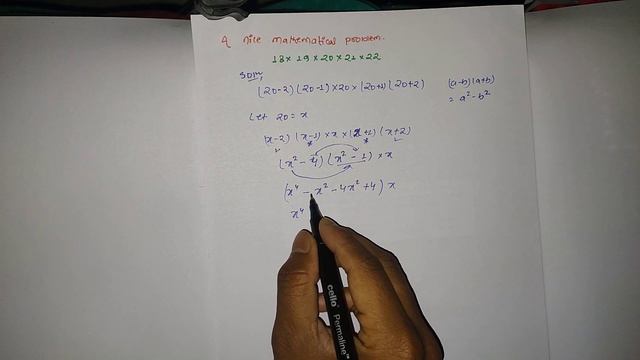 A nice mathematical problem.
18 × 19 × 20 × 21 × 22
Soln,
(20-2) (20-1) × 20 × (20+1) (20+2)
(a-b) (a+b)
= a² - b²
Let 20 = x
(x-2) (x-1) × x × (x+1) (x+2)
(x² - 4) (x² - 1) × x
(x⁴ - x² - 4x² + 4) x
x⁴
cello Permaline